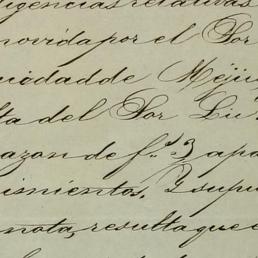 ligencias relativas
movida por el Sor
uidad de Méjic
ta del Sor Lu
razon de f.s 3 apa
ismientos. Y supu
nota, resulta que e